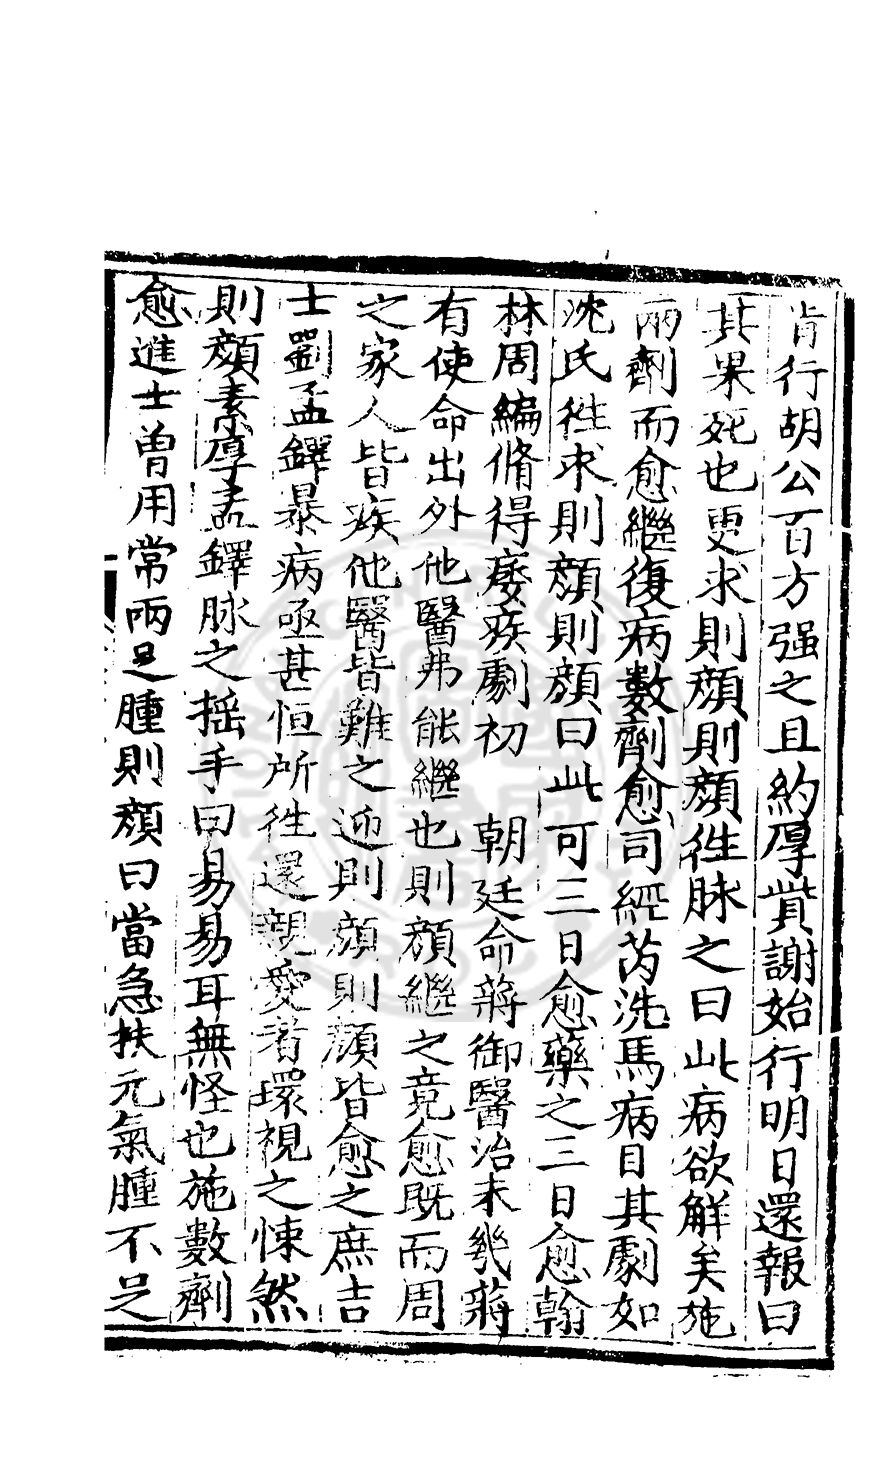 肯行胡公百方强之且約厚貲謝始行明日還報曰
其果死也更求則顔則顔徃脉之曰此病欲解矣施
兩劑而愈繼復病數劑愈司經芮洗馬病目其劇如
沈氏徃求則顔則顔曰此可三日愈藥之三日愈翰
林周編脩得痿疾劇初　朝廷命蔣御醫治未幾蔣
有使命出外他醫弗能繼也則顔繼之竟愈既而周
之家人皆疾他醫皆難之迎則顔則顔皆愈之庶吉
士劉孟鐸暴病亟甚恒所徃還親愛者環視之悚然
則顔素厚孟鐸脉之揺手曰易易耳無怪也施數劑
愈進士曾用常兩足腫則顔曰當急扶元氣腫不足